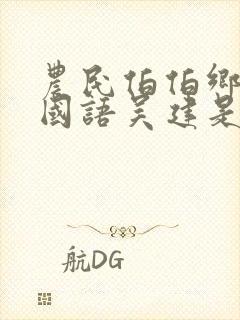 農民伯伯鄉
國語吴建是
航DG